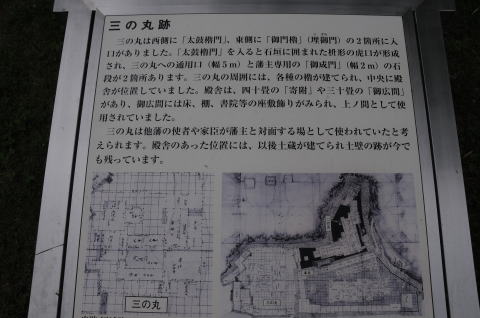 三の丸跡
三の丸は西側に「太鼓櫓門」、東側に「御門櫓」（埋御門）の２箇所に入
口がありました。「太鼓櫓門」を入ると石垣に囲まれた枡形の虎口が形成
され、三の丸への通用口（幅５ｍ）と藩主専用の「御成門」（幅２ｍ）の石
段が２箇所あります。三の丸の周囲には、各種の櫓が建てられ、中央に殿
舎が位置していました。殿舎は、四十畳の「寄附」や三十畳の「御広間」
があり、御広間には床、棚、書院等の座敷飾りがみられ、上ノ間として使
用されていました。
三の丸は他藩の使者や家臣が藩主と対面する場として使われていたと考
えられます。殿舎のあった位置には、以後土蔵が建てられ土壁の跡が今で
も残っています。
三の丸